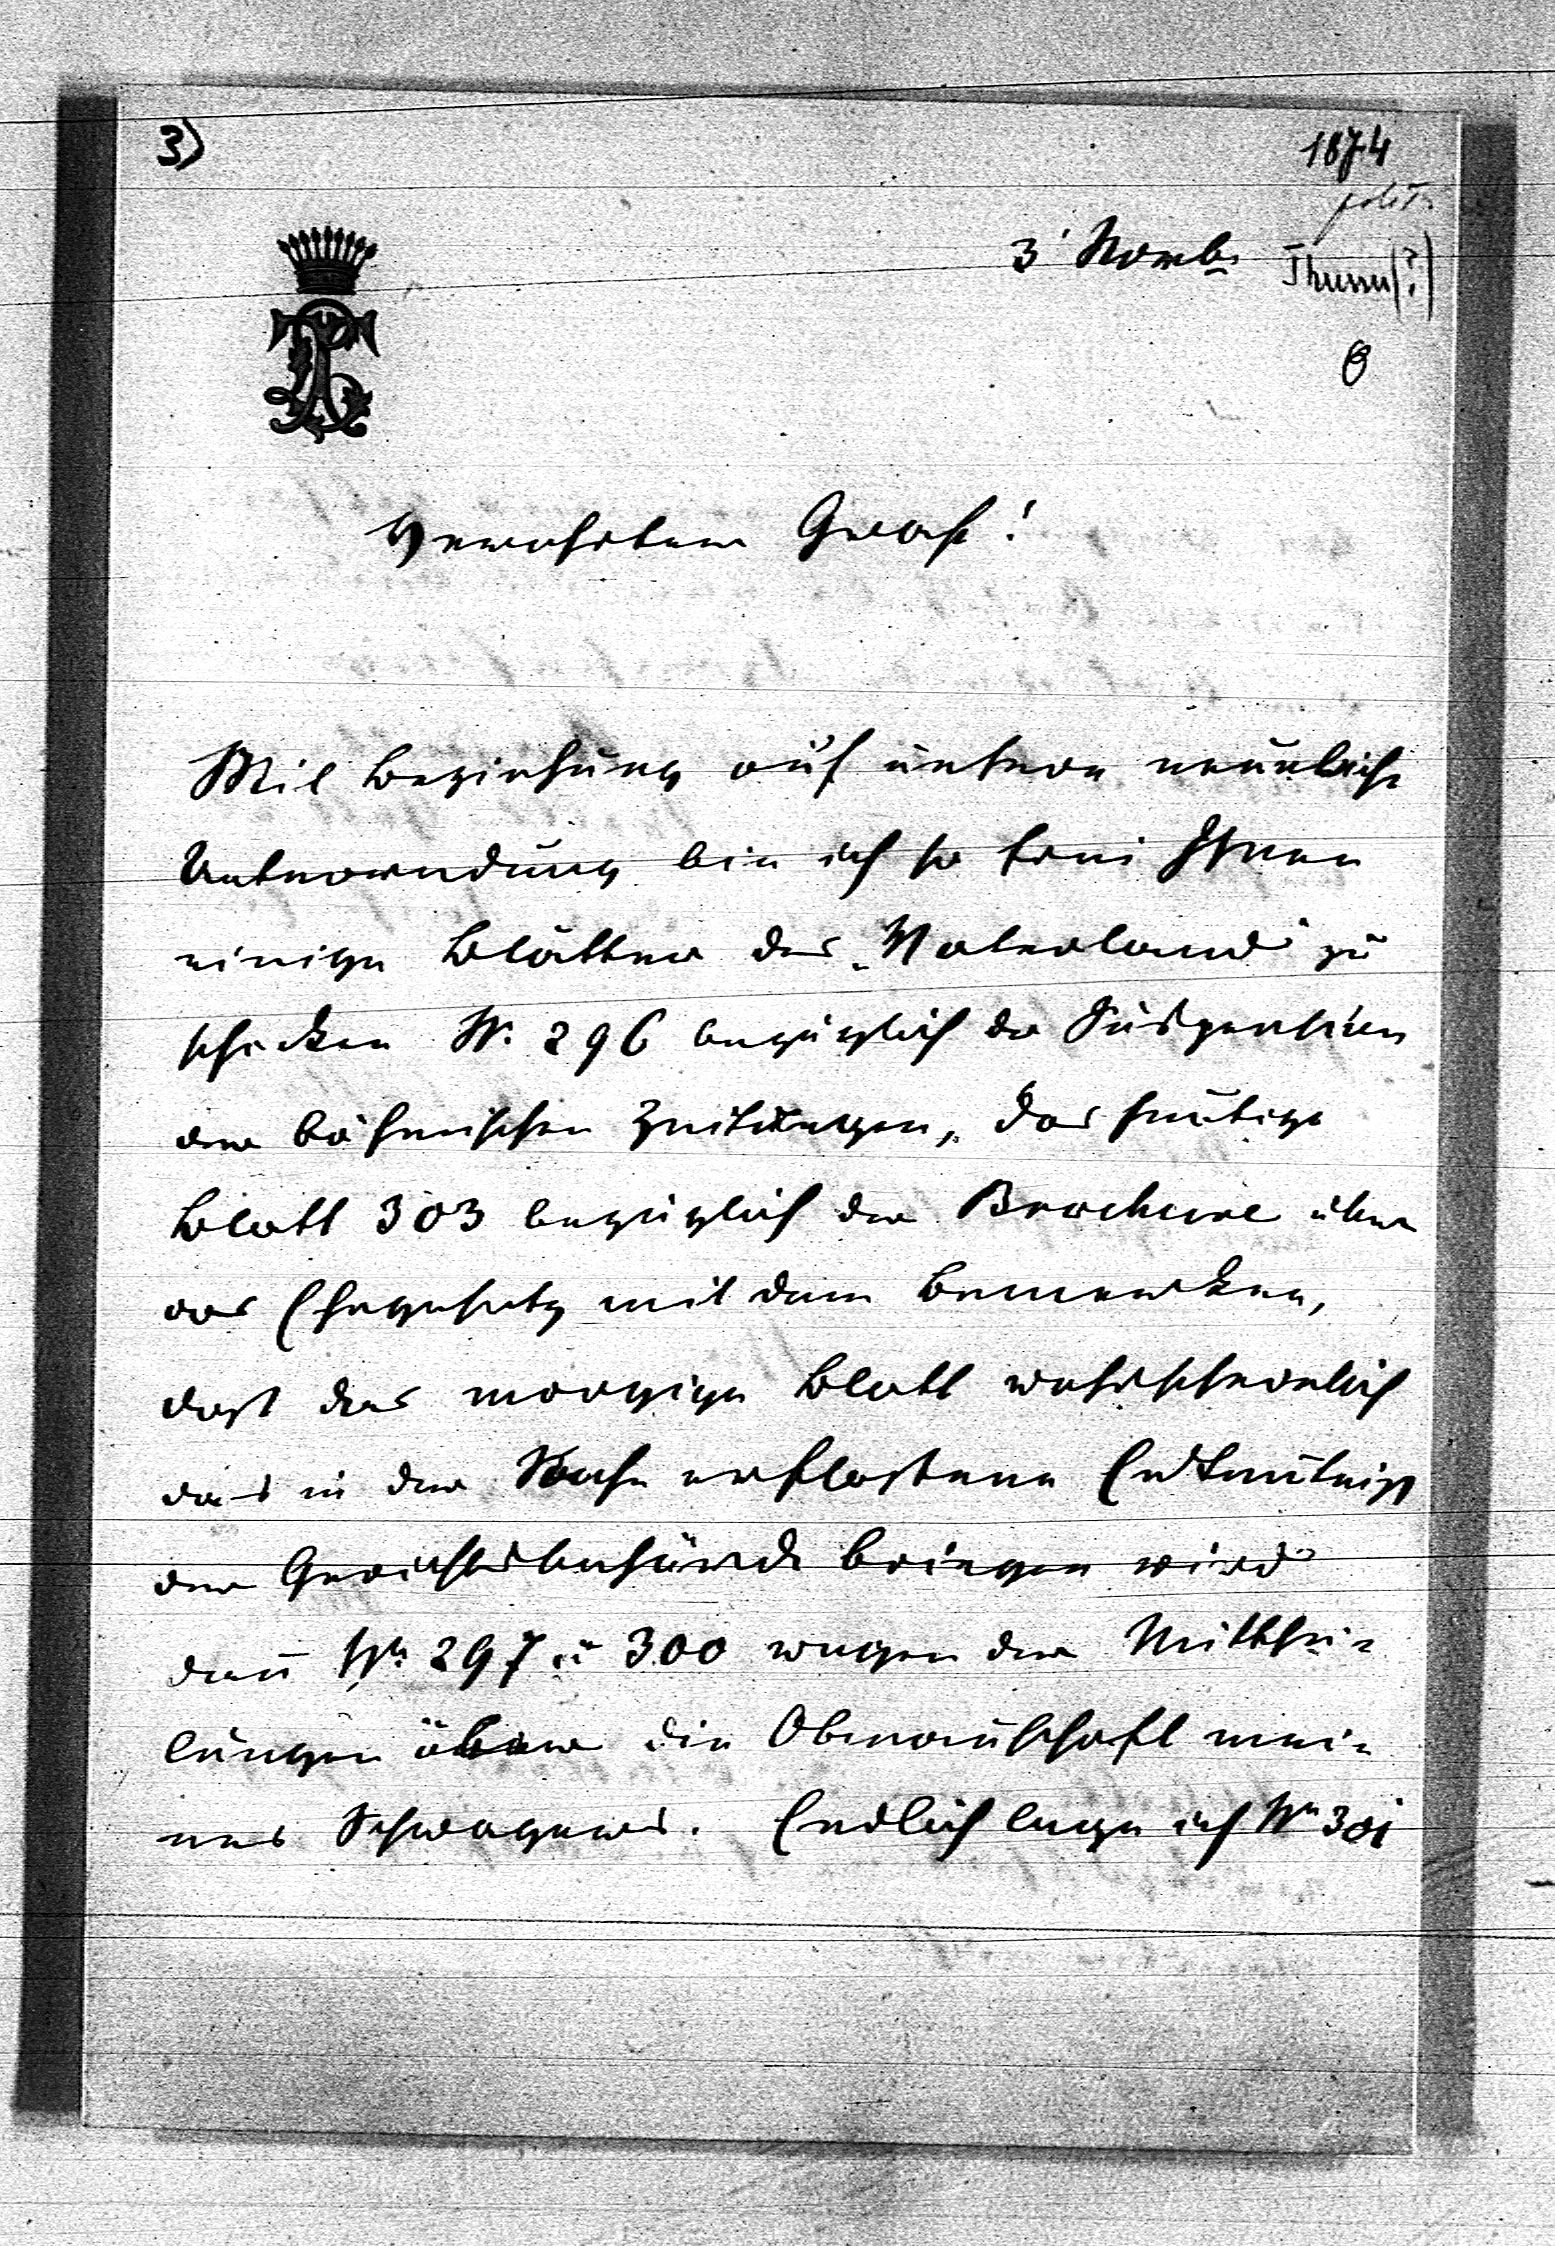 3)
1874
polit.
3' Novmb.
Thun(?)
Verehrter Graf!
Mit Beziehung auf unsere neuliche
Unterredung bin ich so frei Ihnen
einige Blätter des „Vaterland" zu
schicken Nr. 296 bezüglich der Suspension
der böhmischen Zeitungen, das heutige
Blatt 303 bezüglich der Brochure über
das Ehegesetz mit dem Bemerken,
daß das morgige Blatt wahrscheinlich
das in der Sache erflossene Erkenntniß
der Gerichtsbehörde bringen wird
dann Nr. 297 u 300 wegen der Mitthei-
lungen über die Obmannschaft mei-
nes Schwagers. Endlich lege ich Nr 301